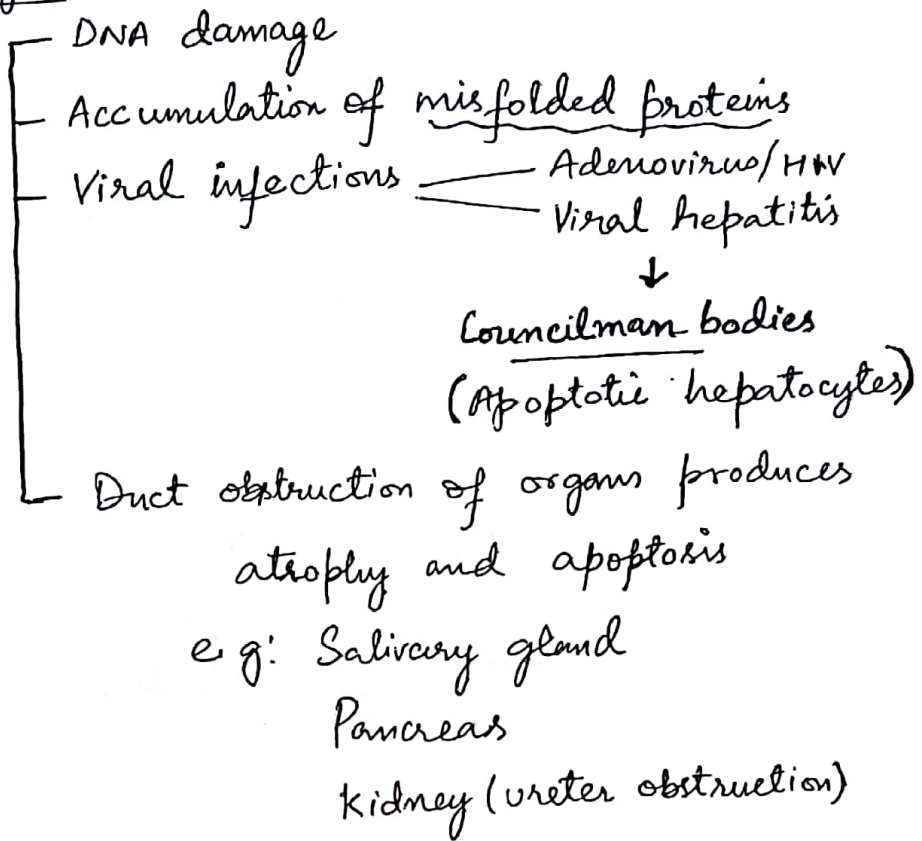 DNA damage
Accumulation of misfolded proteins
Viral infections
Adenovirus/HIV
Viral hepatitis
↓
Councilman bodies
(Apoptotic hepatocytes)
Duct obstruction of organs produces
atrophy and apoptosis
e.g: Salivary gland
Pancreas
Kidney (ureter obstruction)